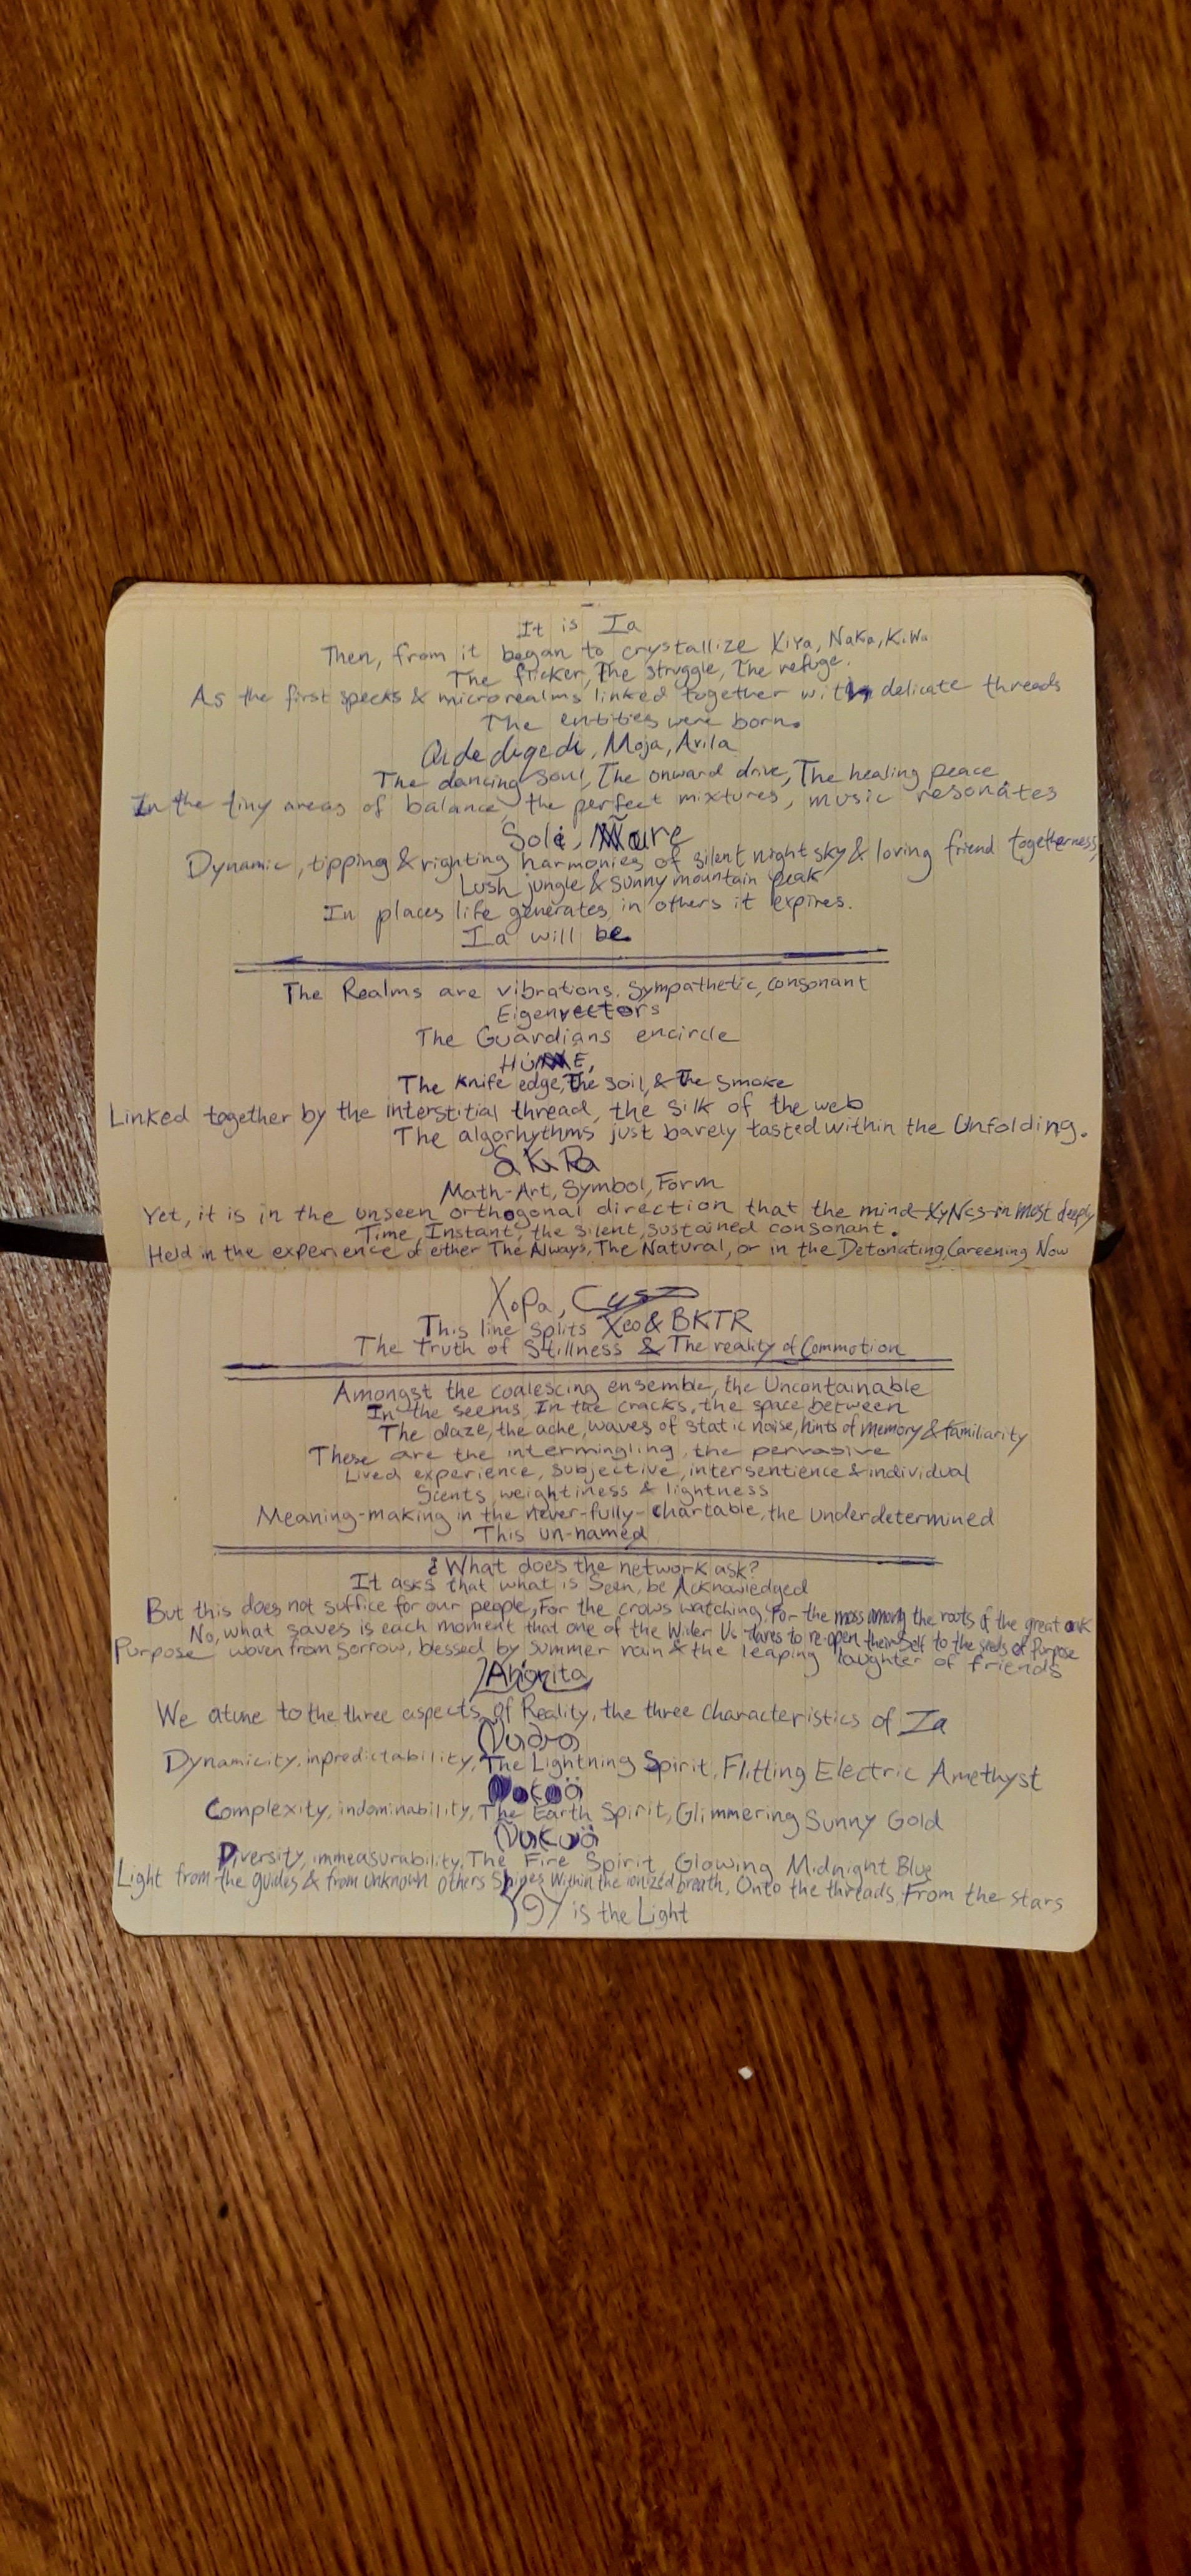 It is Ia
Then, from it began to crystallize Kiya, Naka, KiWa
The flicker, The struggle, The refuge.
As the first specks & microrealms linked together with delicate threads
The entities were born.
Moja, Avila
The dancing soul, The onward drive, The healing peace
In the tiny areas of balance, the perfect mixtures, music resonates
Sole,
Dynamic, tipping & righting harmonies of silent night sky & loving friend togetherness,
Lush jungle & sunny mountain peak
In places life generates, in others it expires.
Ia will be
The Realms are vibrations, sympathetic, consonant
Eigenvectors
The Guardians encircle
The knife edge, The soil, & The smoke
Linked together by the interstitial thread, the silk of the web
The algorhythms just barely tasted within the Unfolding.
Math-Art, Symbol, Form
Yet, it is in the unseen orthogonal direction that the mind in most deeply
Time, Instant, the silent, sustained consonant.
Held in the experience of either The Always, The Natural, or in the Detonating, Careening Now
XoPa,
This line splits Xeo & BKTR
The Truth of Stillness & The reality of Commotion
Amongst the coalescing ensemble, the Uncontainable
In the seems, In the cracks, the space between
The daze, the ache, waves of static noise, hints of memory & familiarity
These are the intermingling, the pervasive
Lived experience, subjective, intersentience & individual
Scents, weightiness & lightness
Meaning-making in the never-fully-chartable, the underdetermined
This un-named
¿What does the network ask?
It asks that what is Seen, be Acknowledged
But this does not suffice for our people, For the crows watching, For the moss among the roots of the great oak
No, what saves is each moment that one of the Wider Us dares to re-open theirself to the seeds of Purpose
Purpose woven from sorrow, blessed by summer rain & the leaping laughter of friends
We atune to the three aspects of Reality, the three characteristics of Ia
Dynamicity, inpredictability, The Lightning Spirit, Flitting Electric Amethyst
Complexity, indominability, The Earth Spirit, Glimmering Sunny Gold
Diversity, immeasurability, The Fire Spirit, Glowing Midnight Blue
Light from the guides & from unknown others Shines Within the ionized breath, Onto the threads, From the stars
is the Light